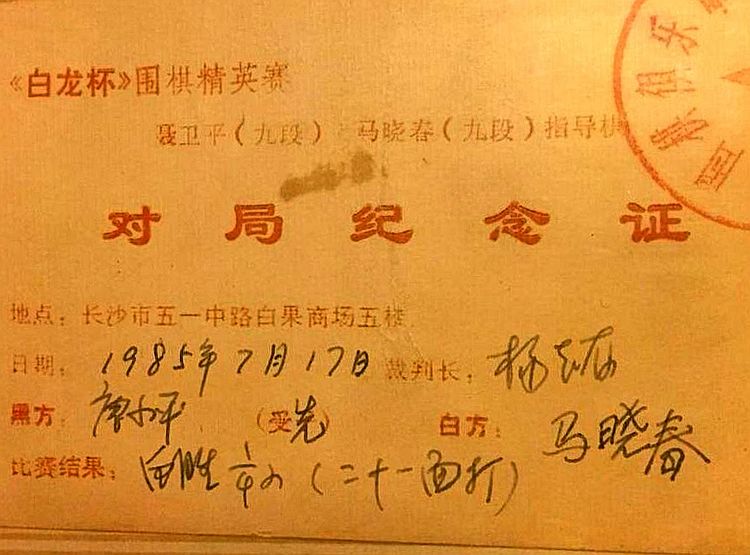 《白龙杯》围棋精英赛
聂卫平（九段） 马晓春（九段）指导棋
围棋俱乐
对局纪念证
地点：长沙市五一中路白果商场五楼
日期：1985年7月17日 裁判长：杨
黑方：廖小平 （受先） 白方：马晓春
比赛结果：白胜1/4子（二十一面打）